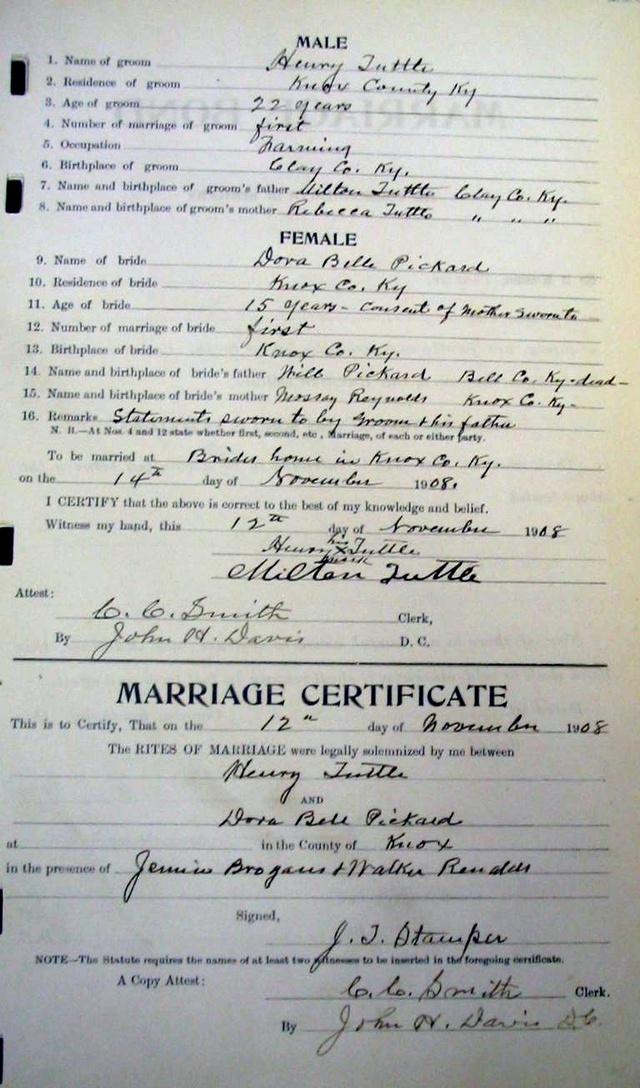 MALE
1. Name of groom Henry Tuttle
2. Residence of groom Knox County Ky
3. Age of groom 22 years
4. Number of marriage of groom first
5. Occupation Farming
6. Birthplace of groom Clay Co. Ky.
7. Name and birthplace of groom's father Milton Tuttle Clay Co. Ky.
8. Name and birthplace of groom's mother Rebecca Tuttle " " "
FEMALE
9. Name of bride Dora Belle Pickard
10. Residence of bride Knox Co. Ky
11. Age of bride 15 years - consent of Mother sworn to
12. Number of marriage of bride first
13. Birthplace of bride Knox Co. Ky.
14. Name and birthplace of bride's father Will Pickard Bell Co. Ky - dead -
15. Name and birthplace of bride's mother Reynolds Knox Co. Ky -
16. Remarks Statements sworn to by Groom & his father
N. B.—At Nos. 4 and 12 state whether first, second, etc, Marriage, of each or either party.
To be married at Brides home in Knox Co. Ky.
on the 14th day of November 1908.
I CERTIFY that the above is correct to the best of my knowledge and belief.
Witness my hand, this 12th day of November 1908
his
Henry x Tuttle
mark
Milton Tuttle
Attest:
C. C. Smith Clerk,
By John H. Davis D. C.
MARRIAGE CERTIFICATE
This is to Certify, That on the 12" day of November 1908
The RITES OF MARRIAGE were legally solemnized by me between
Henry Tuttle
AND
Dora Bell Pickard
at in the County of Knox
in the presence of Brogans & Walker
Signed,
J. T. Stamper
NOTE—The Statute requires the names of at least two witnesses to be inserted in the foregoing certificate.
A Copy Attest:
C. C. Smith Clerk.
By John H. Davis D C